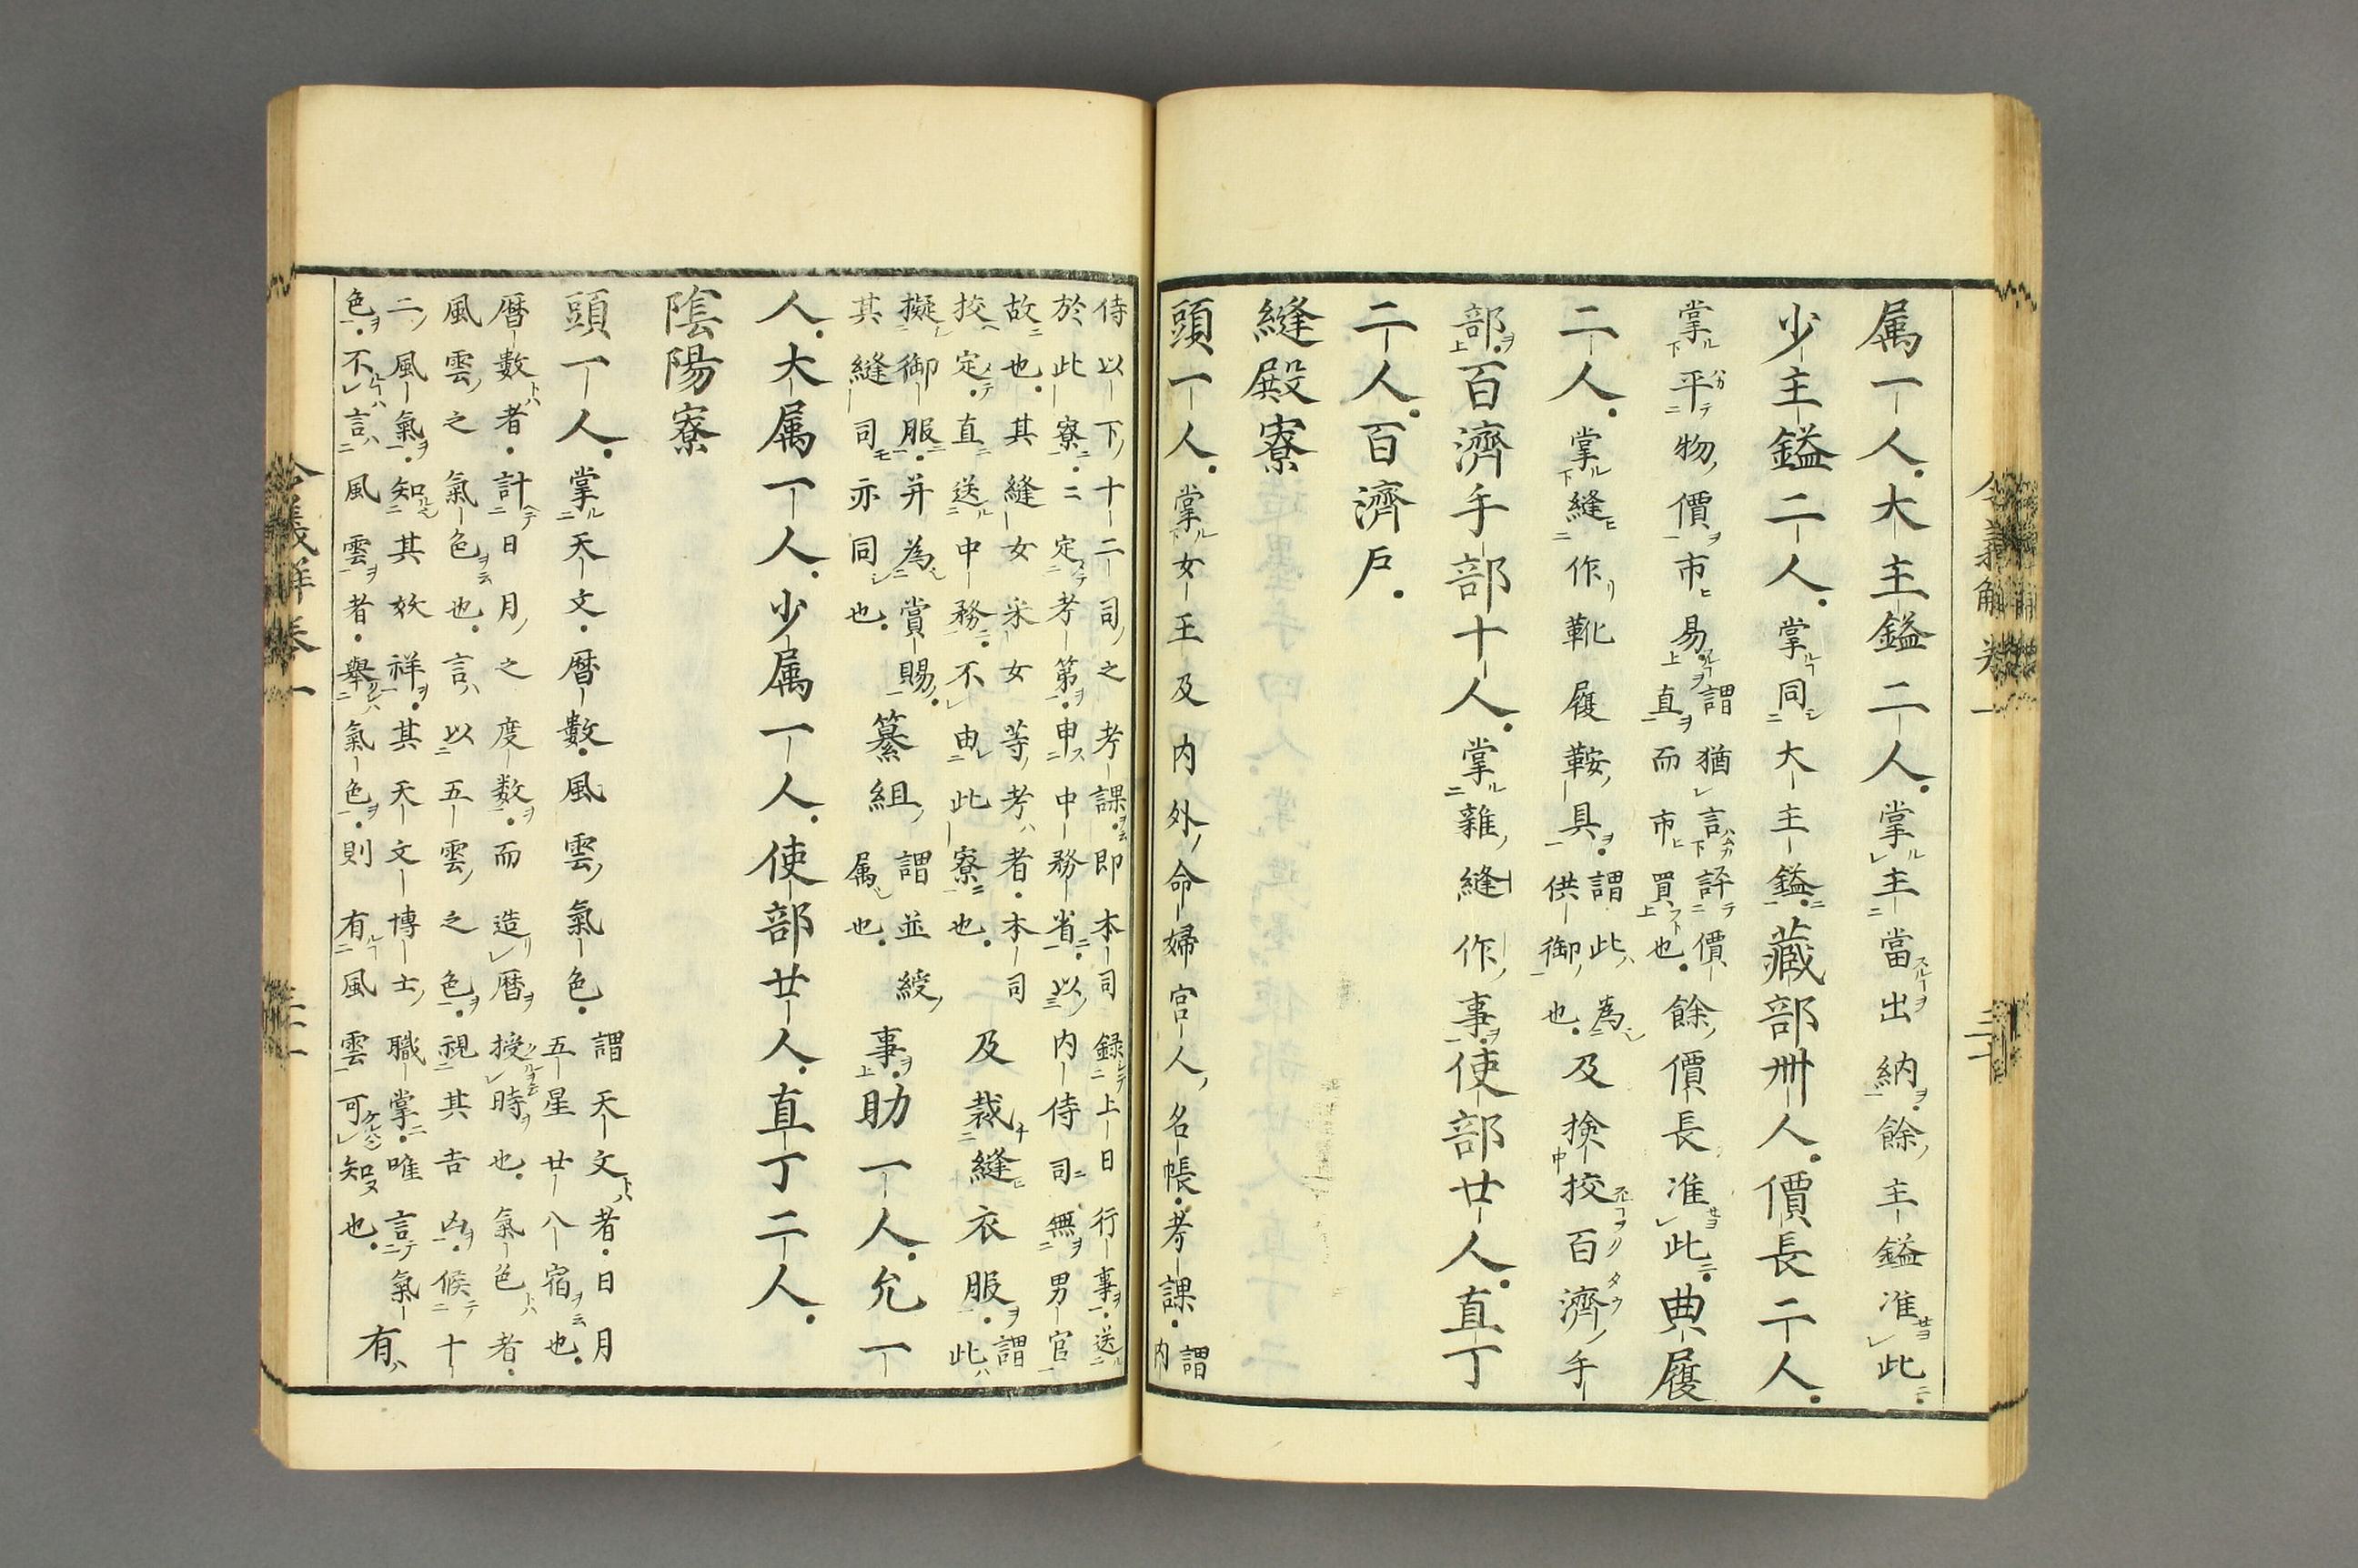 令義解卷一
属一人。大主鎰二人。掌主當出納。餘主鎰准此。
少主鎰二人。掌同大主鎰。藏部卌人。價長二人。
掌平物價市易。謂猶言評價
直而市買也。餘價長准此。典履
二人。掌縫作靴履鞍具。謂此為
供御也。及撿挍百濟手
部。百濟手部十人。掌雜縫作事。使部廿人。直丁
二人。百濟戶。
縫殿寮
頭一人。掌女王及内外命婦宮人名帳。考課。謂
内
侍以下十二司之考課。即本司録上日行事。送
於此寮。々定考第。申中務省。以内侍司無男官
故也。其縫女采女等考者。本司
挍定。直送中務。不由此寮也。及裁縫衣服。謂
此
擬御服。并為賞賜。
其縫司亦同也。纂組謂並綬
属也。事。助一人。允一
人。大属一人。少属一人。使部廿人。直丁二人。
陰陽寮
頭一人。掌天文。曆數。風雲氣色。謂天文者。日月
五星廿八宿也。
曆數者。計日月之度数。而造曆授時也。氣色者。
風雲之氣色也。言以五雲之色。視其吉凶。候十
二風氣。知其妖祥。其天文博士職掌。唯言氣
色。不言風雲者。舉氣色。則有風雲可知也。有
令義解卷一